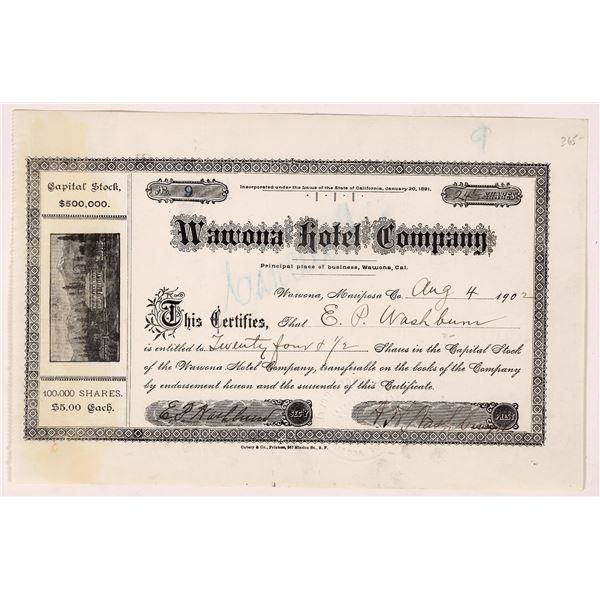 9
265-
Capital Stock,
$500,000.
No. 9
Incorporated under the Laws of the State of California, January 20, 1891.
24½ SHARES
Wawona Hotel Company
Principal place of business, Wawona, Cal.
Wawona, Mariposa Co. Aug 4 1902
This Certifies, That E. P. Washburn
is entitled to Twenty four & 1/2 Shares in the Capital Stock
of the Wawona Hotel Company, transferable on the books of the Company
by endorsement hereon and the surrender of this Certificate.
100,000 SHARES.
$5.00 Each.
E. P. Washburn SEC'Y
Washburn PRES'T
Cubery & Co., Printers, 587 Mission St., S. F.